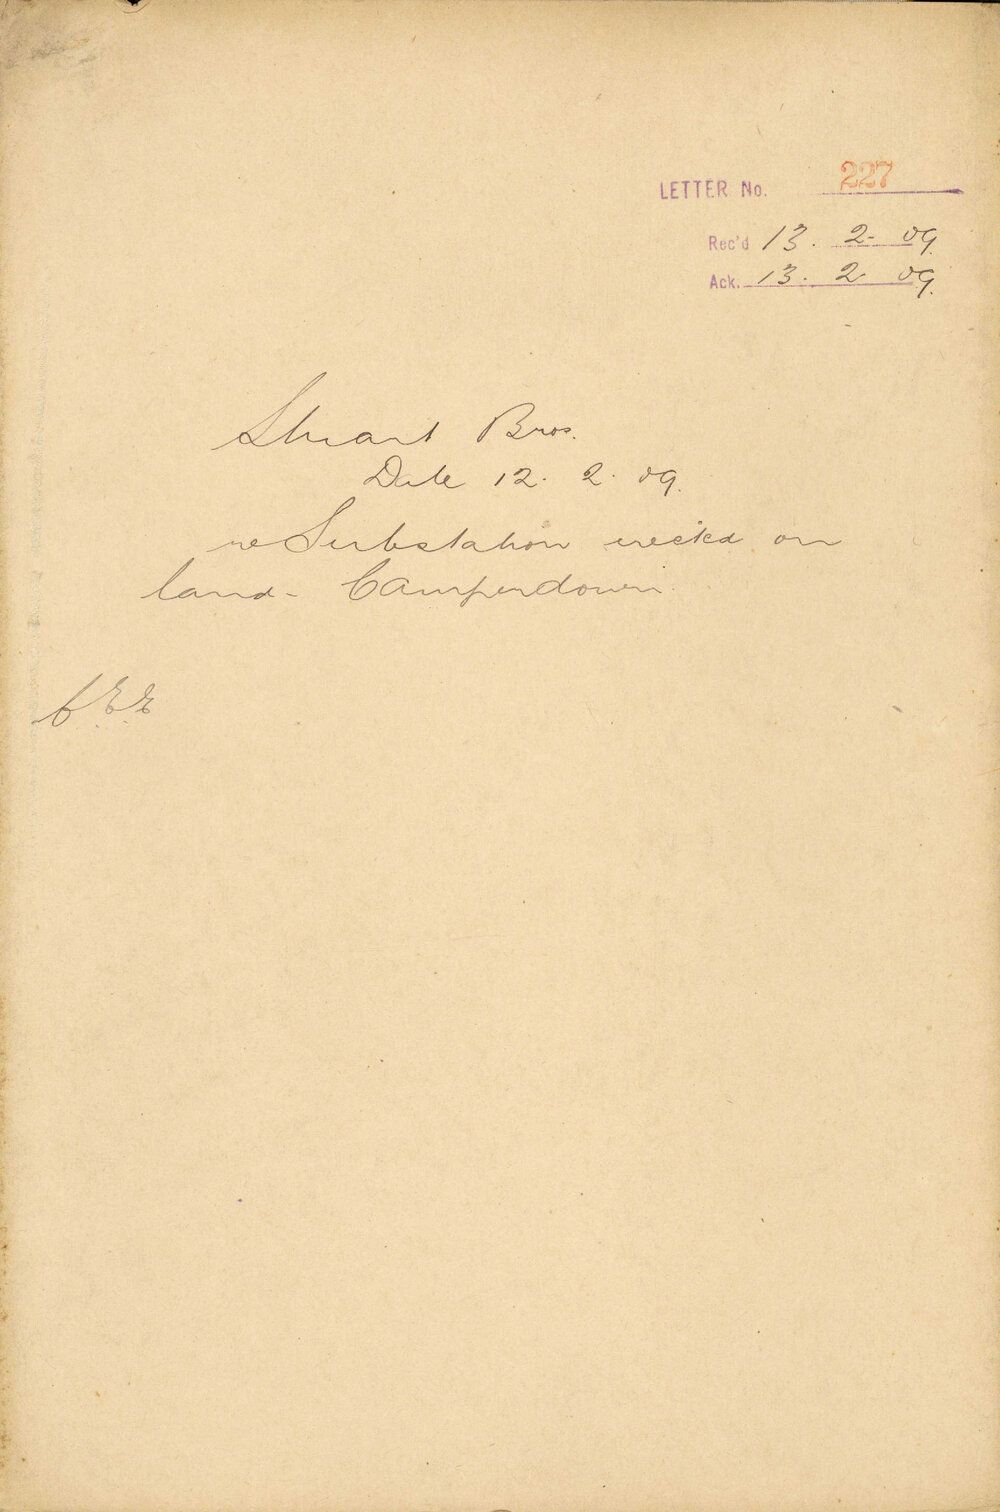 LETTER No. 227
Rec'd 13. 2- 09.
Ack. 13. 2. 09.
Stuart Bros.
Date 12. 2. 09.
re Substation erected on
land - Camperdown.
C.E.E